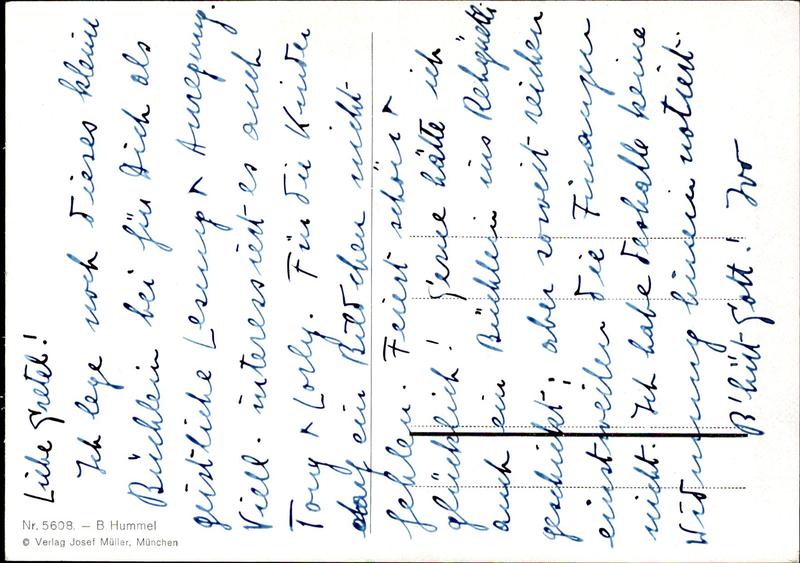 Liebe Gretel!
Ich lege noch dieses kleine
Büchlein bei für Dich als
geistliche Lesung + Anregung.
Viell. interessiert es auch
Tony + Lorly. Für die Kinder
darf ein Bildchen nicht
fehlen. Feiert schön +
glücklich! Gerne hätte ich
auch ein Büchlein ins
geschickt; aber soweit reichen
einstweilen die Finanzen
nicht. Ich habe deshalb keine
Widmung hinein notiert.
B'hüt Gott! Ivo
Nr. 5608. – B Hummel
© Verlag Josef Müller, München